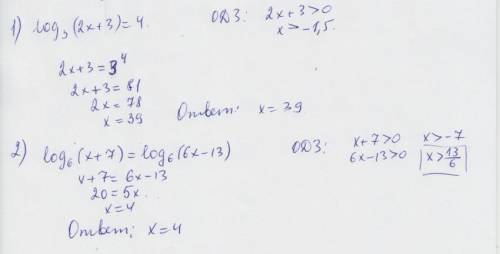 1) log₃(2x+3)=4. ОДЗ: 2x+3>0
x>-1,5.
2x+3=3⁴
2x+3=81
2x=78
x=39 Ответ: x=39
2) log₆(x+7)=log₆(6x-13) ОДЗ: x+7>0 x>-7
x+7=6x-13 6x-13>0 x>13/6
20=5x
x=4
Ответ: x=4